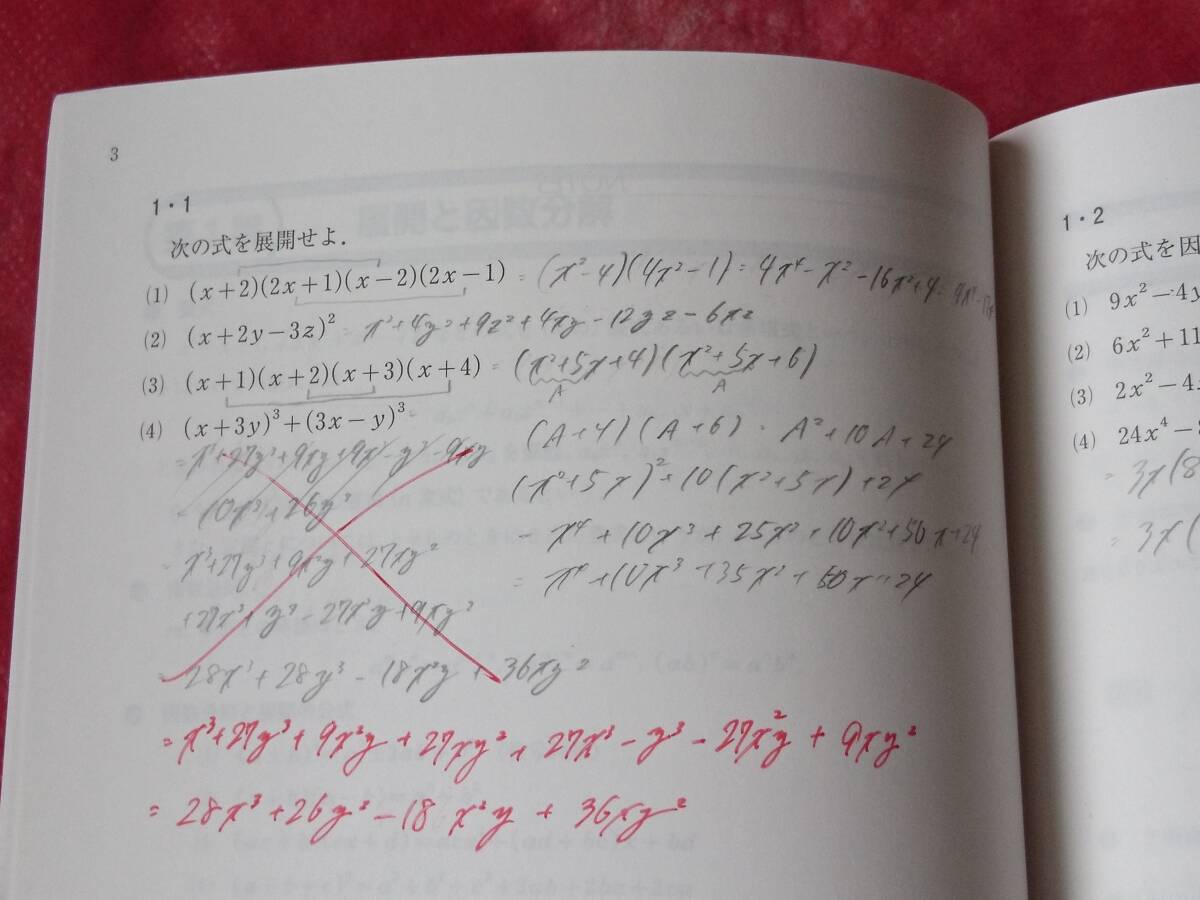 3
1・1
次の式を展開せよ.
(1) (x+2)(2x+1)(x−2)(2x−1) = (x²−4)(4x²−1) = 4x⁴−x²−16x²+4 =
(2) (x+2y−3z)² = x²+4y²+9z²+4xy−12yz−6xz
(3) (x+1)(x+2)(x+3)(x+4) = (x²+5x+4)(x²+5x+6)
A A
(4) (x+3y)³+(3x−y)³ =
(A+4)(A+6) = A²+10A+24
(x²+5x)²+10(x²+5x)+24
= x⁴+10x³+25x²+10x²+50x+24
= x⁴+10x³+35x²+50x+24
= x³+27y³+9xy+9x³−y³−9xy
= 10x³+26y³
= x³+27y³+9x²y+27xy²
+27x³+y³−27x²y+9xy²
= 28x³+28y³−18x²y+36xy²
= x³+27y³+9x²y+27xy²+27x³−y³−27x²y+9xy²
= 28x³+26y³−18x²y+36xy²
1・2
次の式を因
(1) 9x²−4y
(2) 6x²+11
(3) 2x²−4
(4) 24x⁴−
= 3x(8
= 3x(